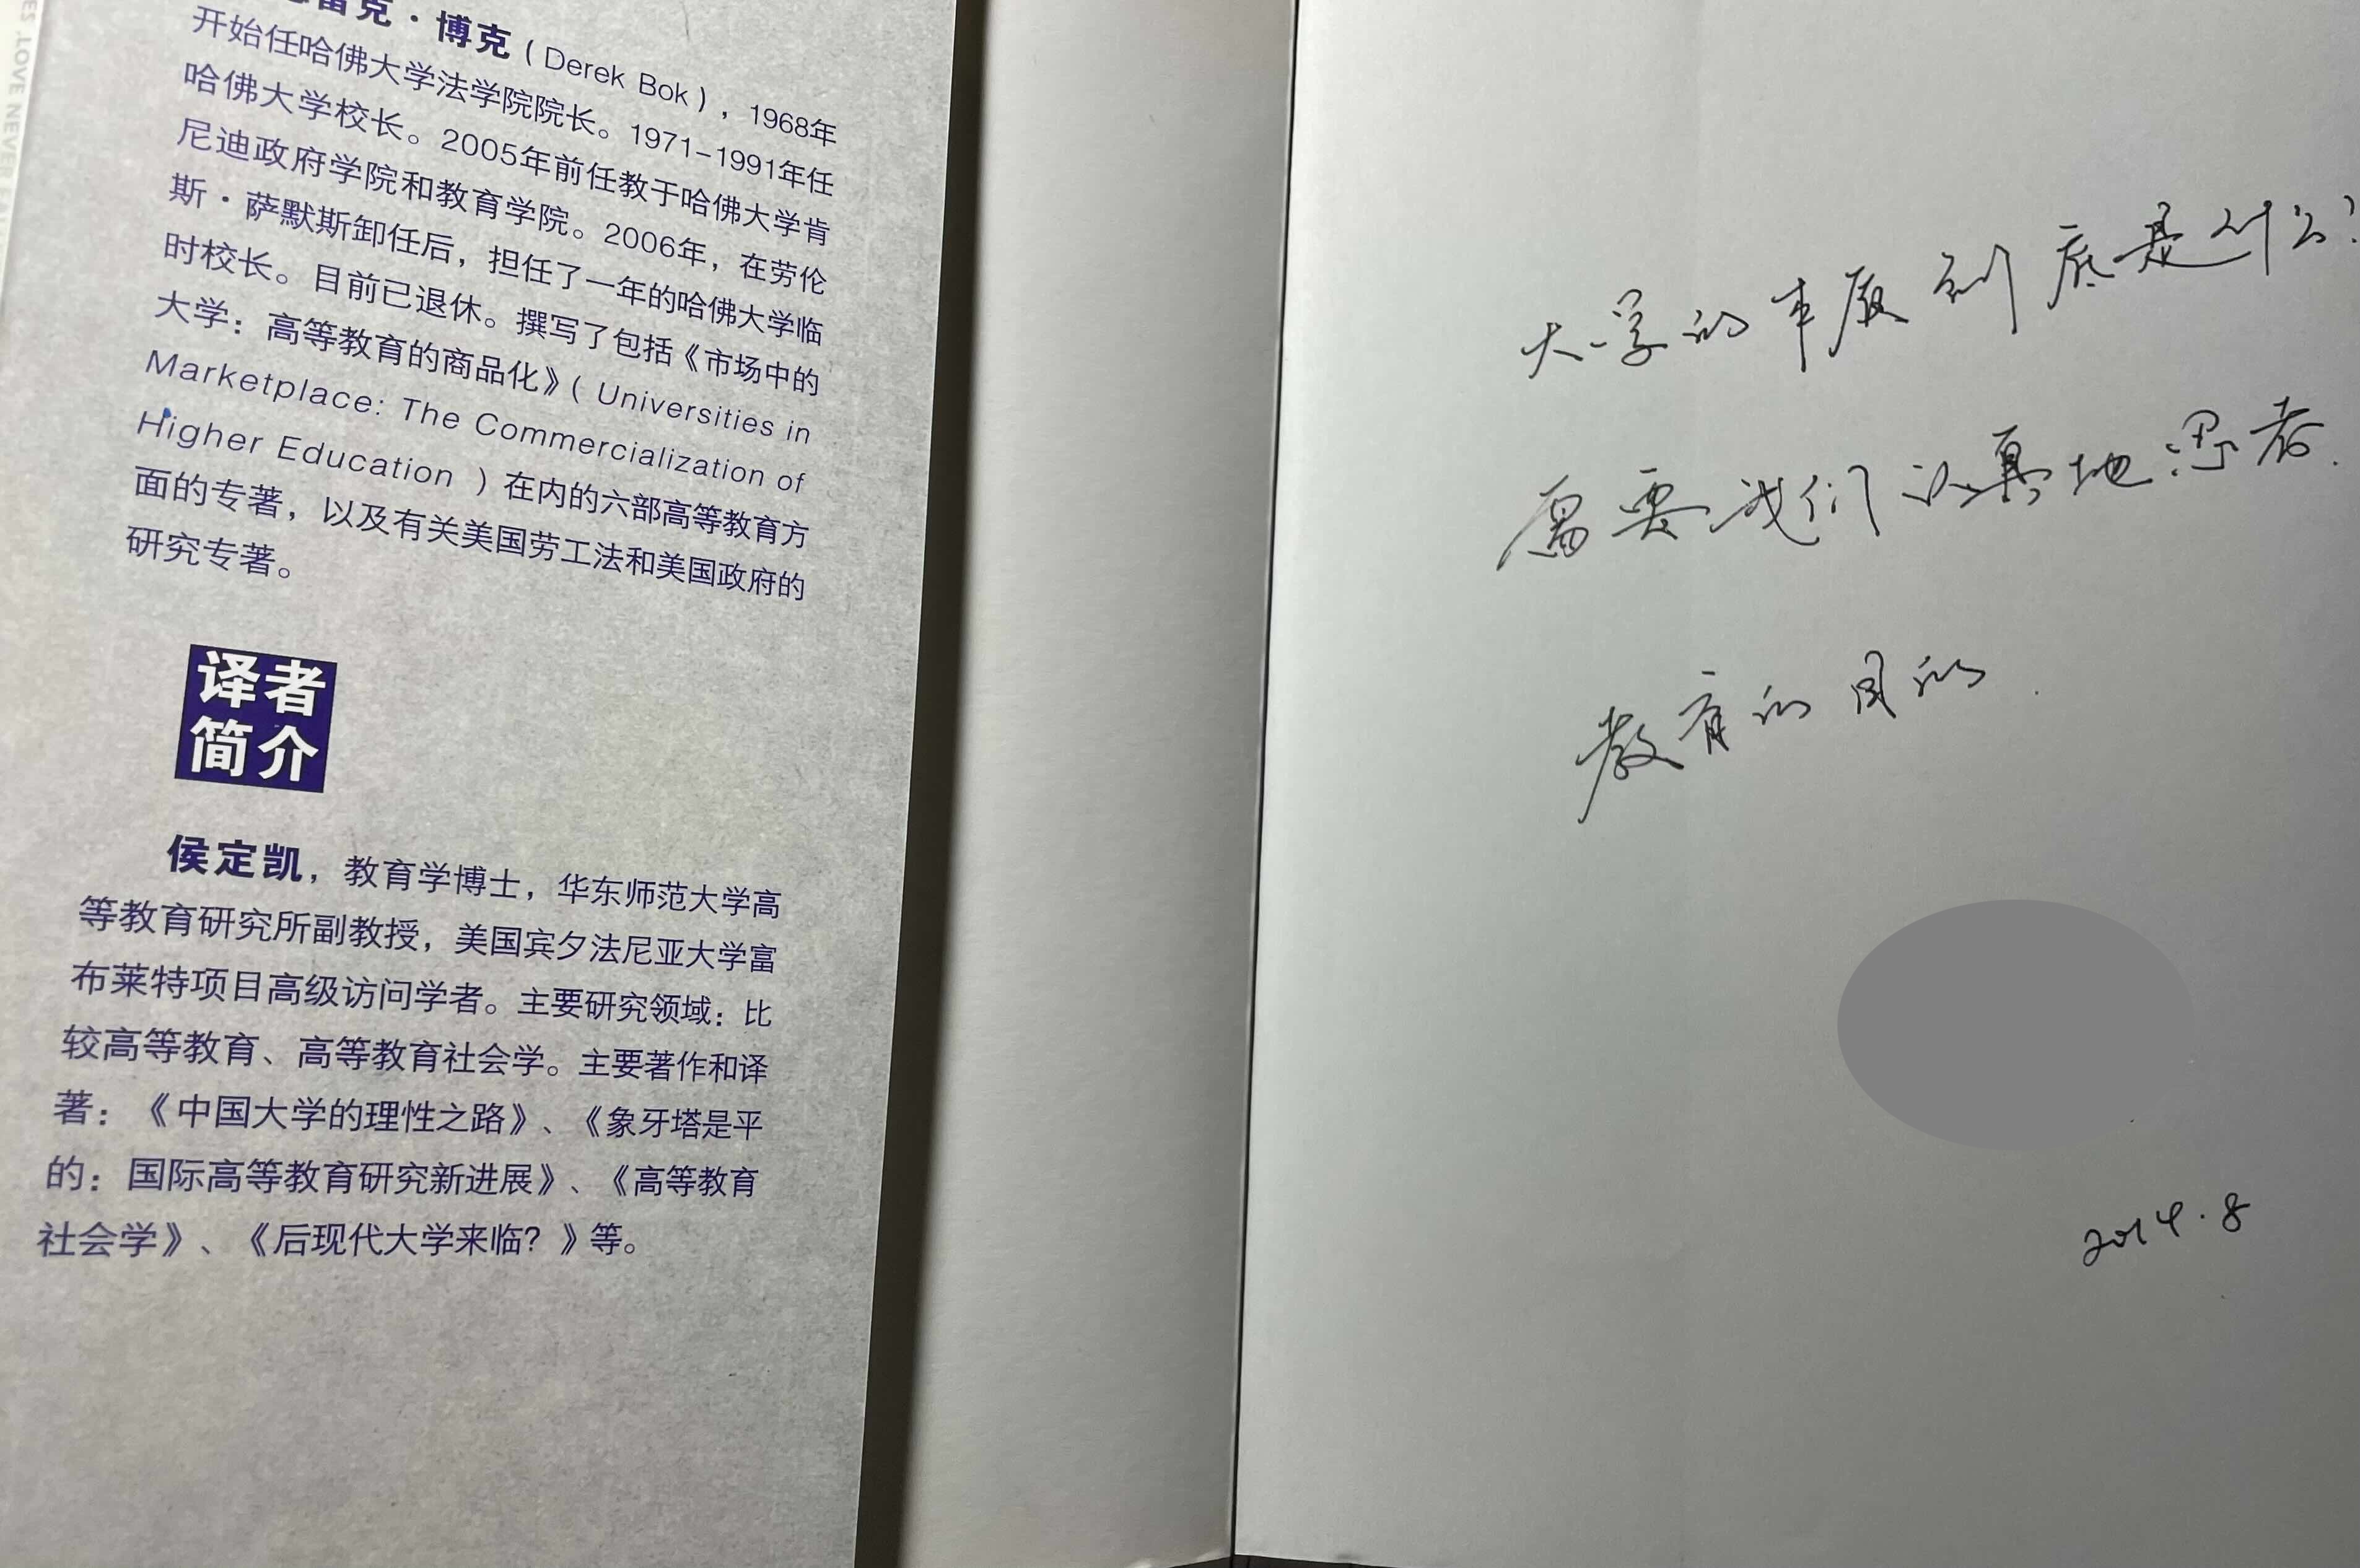 ES .LOVE NEVER
雷克·博克（Derek Bok），1968年
开始任哈佛大学法学院院长。1971-1991年任
哈佛大学校长。2005年前任教于哈佛大学肯
尼迪政府学院和教育学院。2006年，在劳伦
斯·萨默斯卸任后，担任了一年的哈佛大学临
时校长。目前已退休。撰写了包括《市场中的
大学：高等教育的商品化》（Universities in
Marketplace: The Commercialization of
Higher Education ）在内的六部高等教育方
面的专著，以及有关美国劳工法和美国政府的
研究专著。
译者
简介
侯定凯，教育学博士，华东师范大学高
等教育研究所副教授，美国宾夕法尼亚大学富
布莱特项目高级访问学者。主要研究领域：比
较高等教育、高等教育社会学。主要著作和译
著：《中国大学的理性之路》、《象牙塔是平
的：国际高等教育研究新进展》、《高等教育
社会学》、《后现代大学来临？》等。
大学的本质到底是什么？
需要我们认真地思考.
教育的目的.
2014.8